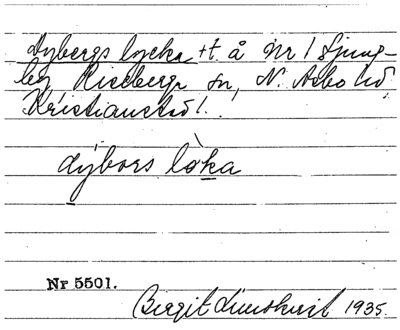 Dybergs lycka +t. å Nr 1 Ljung-
by Riseberga sn, N. Åsbo hd
Kristianstad l.
dýbors lòka
Nr 5501.
Birgit Lindkvist 1935.